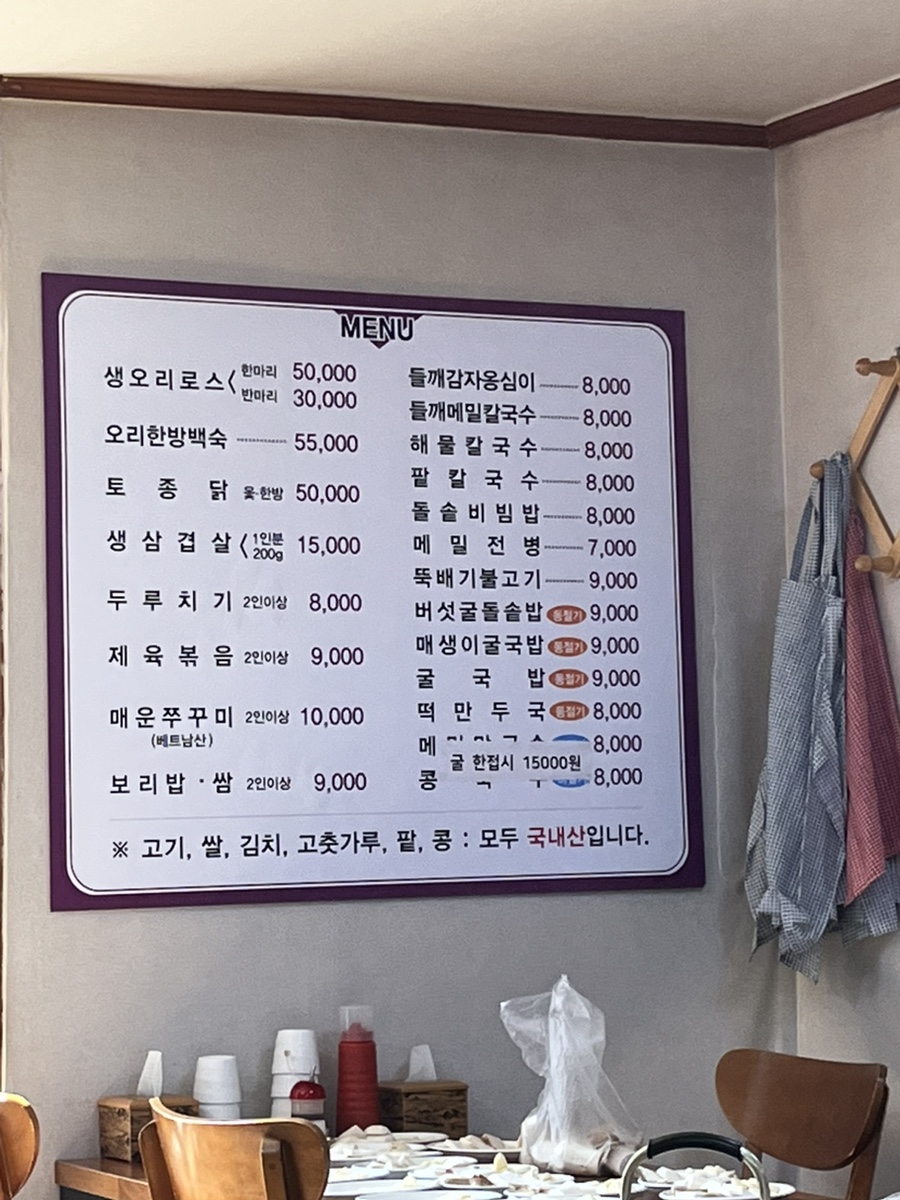 MENU
생오리로스 한마리 50,000
반마리 30,000
오리한방백숙 55,000
토종닭 옻·한방 50,000
생삼겹살 1인분 200g 15,000
두루치기 2인이상 8,000
제육볶음 2인이상 9,000
매운쭈꾸미 2인이상 10,000
(베트남산)
보리밥·쌈 2인이상 9,000
들깨감자옹심이 8,000
들깨메밀칼국수 8,000
해물칼국수 8,000
팥칼국수 8,000
돌솥비빔밥 8,000
메밀전병 7,000
뚝배기불고기 9,000
버섯굴돌솥밥 동절기 9,000
매생이굴국밥 동절기 9,000
굴국밥 동절기 9,000
떡만두국 동절기 8,000
8,000
굴 한접시 15000원
8,000
※ 고기, 쌀, 김치, 고춧가루, 팥, 콩 : 모두 국내산입니다.